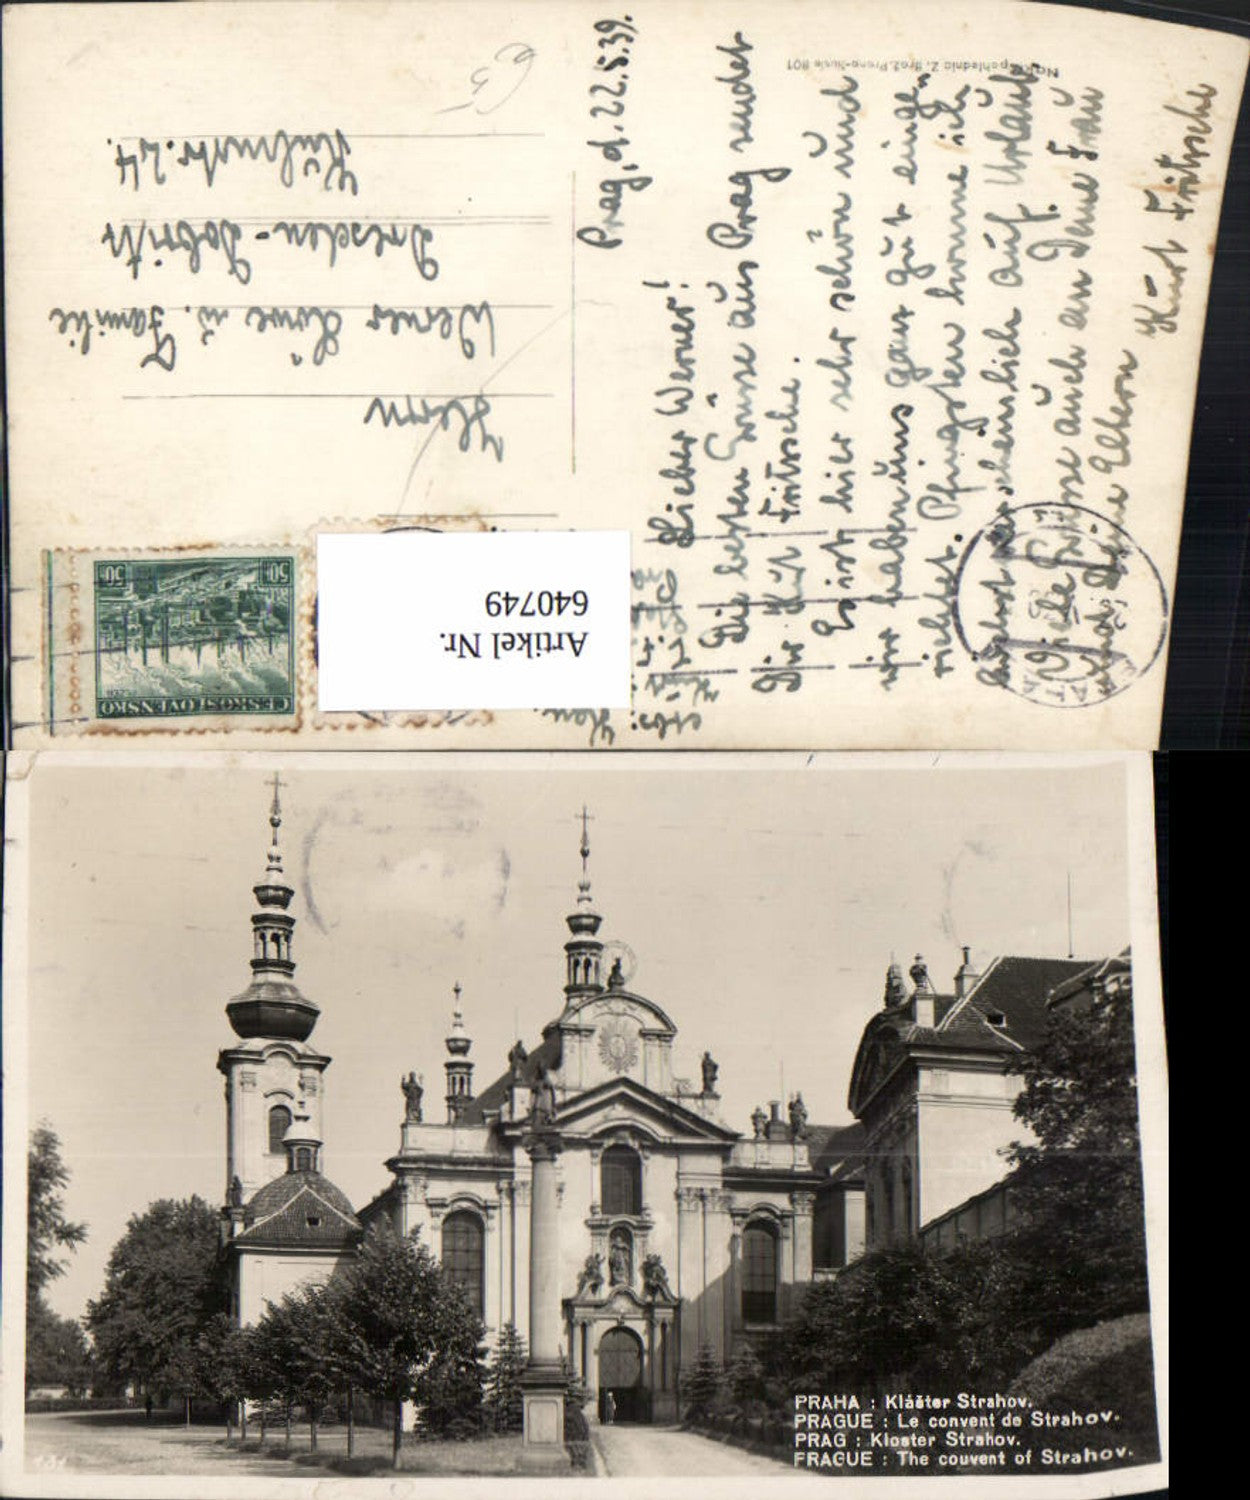 Prag, d. 22.5.39.
Lieber Werner!
Die besten Grüsse aus Prag sendet
Dir Kurt Fritsche.
Es ist hier sehr schön und
wir haben uns ganz gut einge-
richtet. Pfingsten komme ich
höchst wahrscheinlich auf Urlaub.
Viele Grüsse auch an Deine Frau
und Deine Eltern
Kurt Fritsche
Abs:
Herrn
Werner Löwe u. Familie
Dresden-Dobritz
Artikel Nr.
640749
50
50
ČESKOSLOVENSKO
PLZEŇ
PRAHA : Klášter Strahov.
PRAGUE : Le convent de Strahov.
PRAG : Kloster Strahov.
FRAGUE : The couvent of Strahov.
131